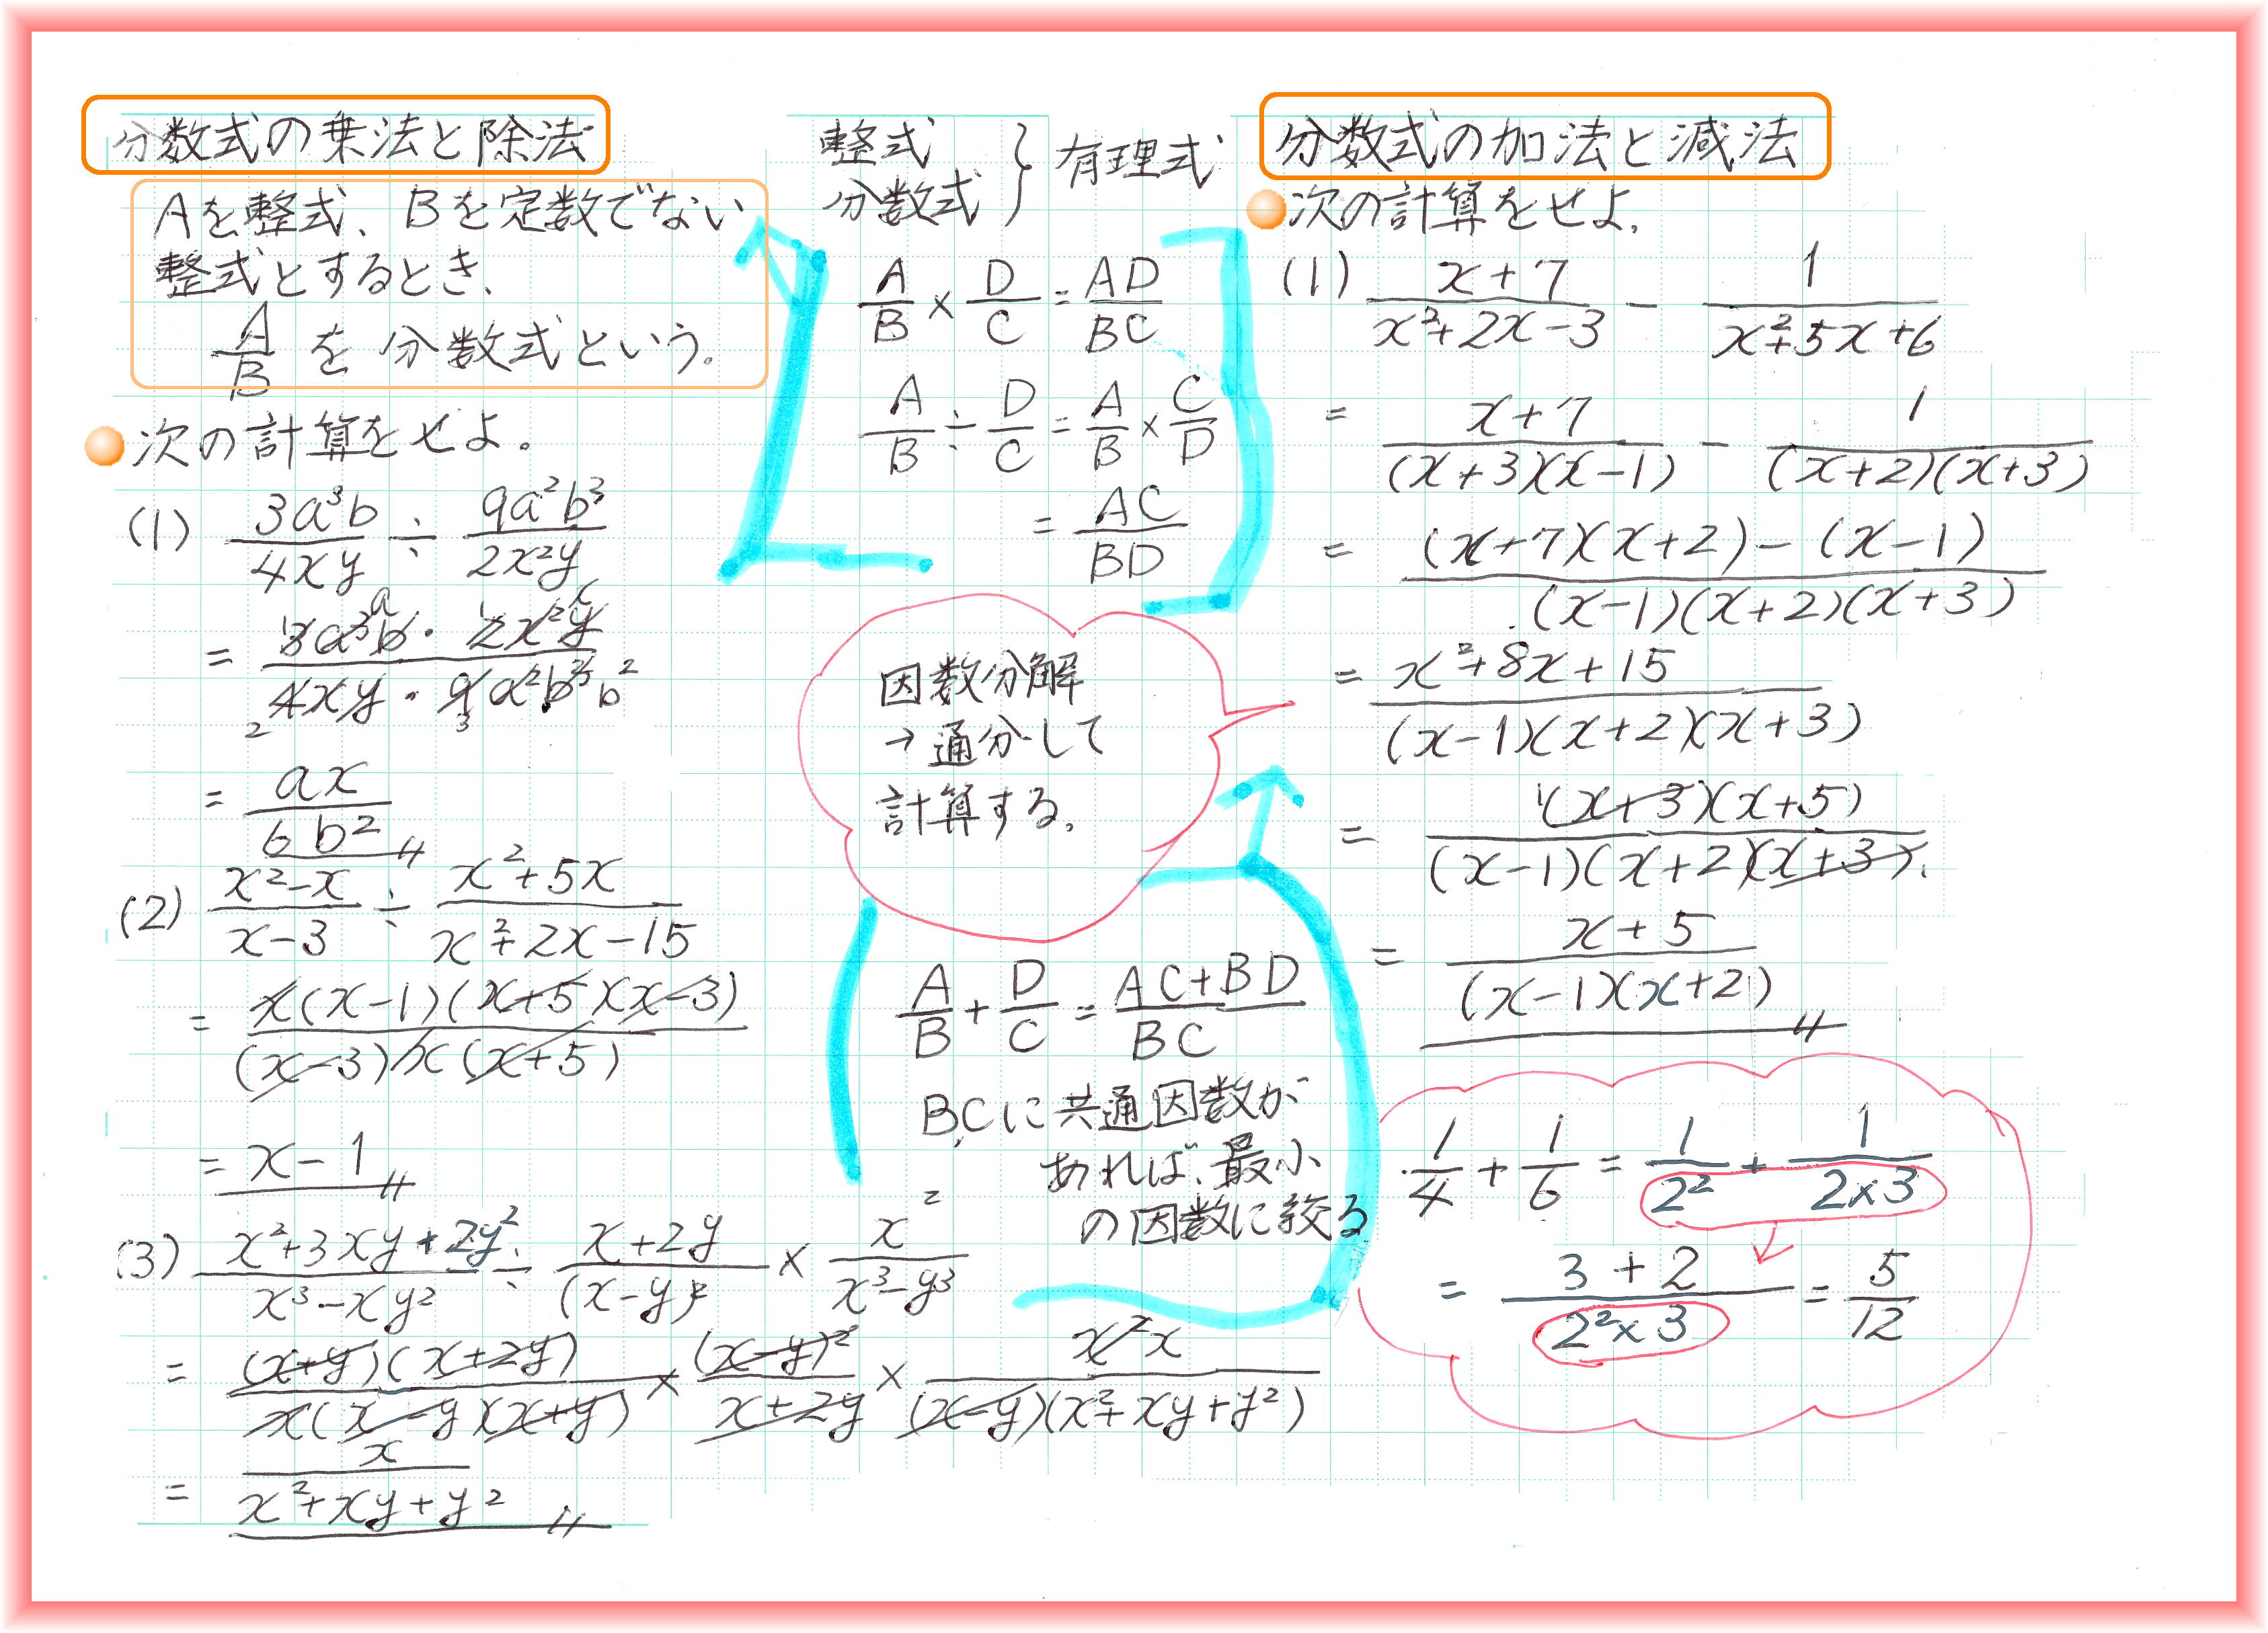 分数式の乗法と除法
Aを整式、Bを定数でない
整式とするとき、
A/B を分数式という。
次の計算をせよ。
(1) 3a³b/4xy ÷ 9a²b³/2x²y
= 3a³b・2x²y/4xy・9a²b³
= ax/6b²
(2) x²-x/x-3 ÷ x²+5x/x²+2x-15
= x(x-1)(x+5)(x-3)/(x-3)x(x+5)
= x-1
(3) x²+3xy+2y²/x³-xy² ÷ x+2y/(x-y)² × x²/x³-y³
= (x+y)(x+2y)/x(x-y)(x+y) × (x-y)²/x+2y × x²x/(x-y)(x²+xy+y²)
= x/x²+xy+y²
整式
分数式 } 有理式
A/B × D/C = AD/BC
A/B ÷ D/C = A/B × C/D
= AC/BD
因数分解
→通分して
計算する。
A/B + D/C = AC+BD/BC
B,Cに共通因数が
あれば、最小
の因数に絞る
分数式の加法と減法
次の計算をせよ。
(1) x+7/x²+2x-3 - 1/x²+5x+6
= x+7/(x+3)(x-1) - 1/(x+2)(x+3)
= (x+7)(x+2)-(x-1)/(x-1)(x+2)(x+3)
= x²+8x+15/(x-1)(x+2)(x+3)
= (x+3)(x+5)/(x-1)(x+2)(x+3)
= x+5/(x-1)(x+2)
1/4 + 1/6 = 1/2² + 1/2×3
= 3+2/2²×3 = 5/12